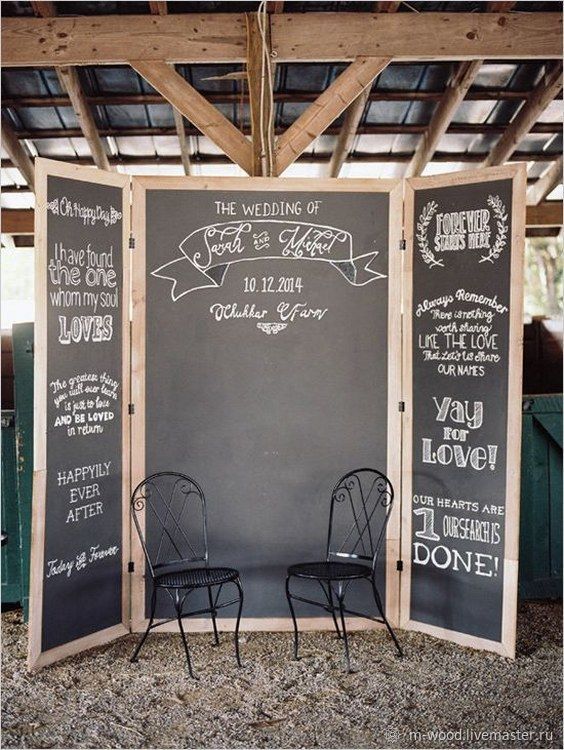 Oh Happy Day
I have found
the one
whom my soul
LOVES
The greatest thing
you will ever learn
is just to love
AND BE LOVED
in return
HAPPILY
EVER
AFTER
Today & Forever
THE WEDDING OF
Sarah AND Michael
10.12.2014
Chukkar Farm
FOREVER
STARTS HERE
Always Remember
There is nothing
worth sharing
LIKE THE LOVE
That Let's Us Share
OUR NAMES
Yay
for
Love!
OUR HEARTS ARE
1 OUR SEARCH IS
DONE!
m-wood.livemaster.ru